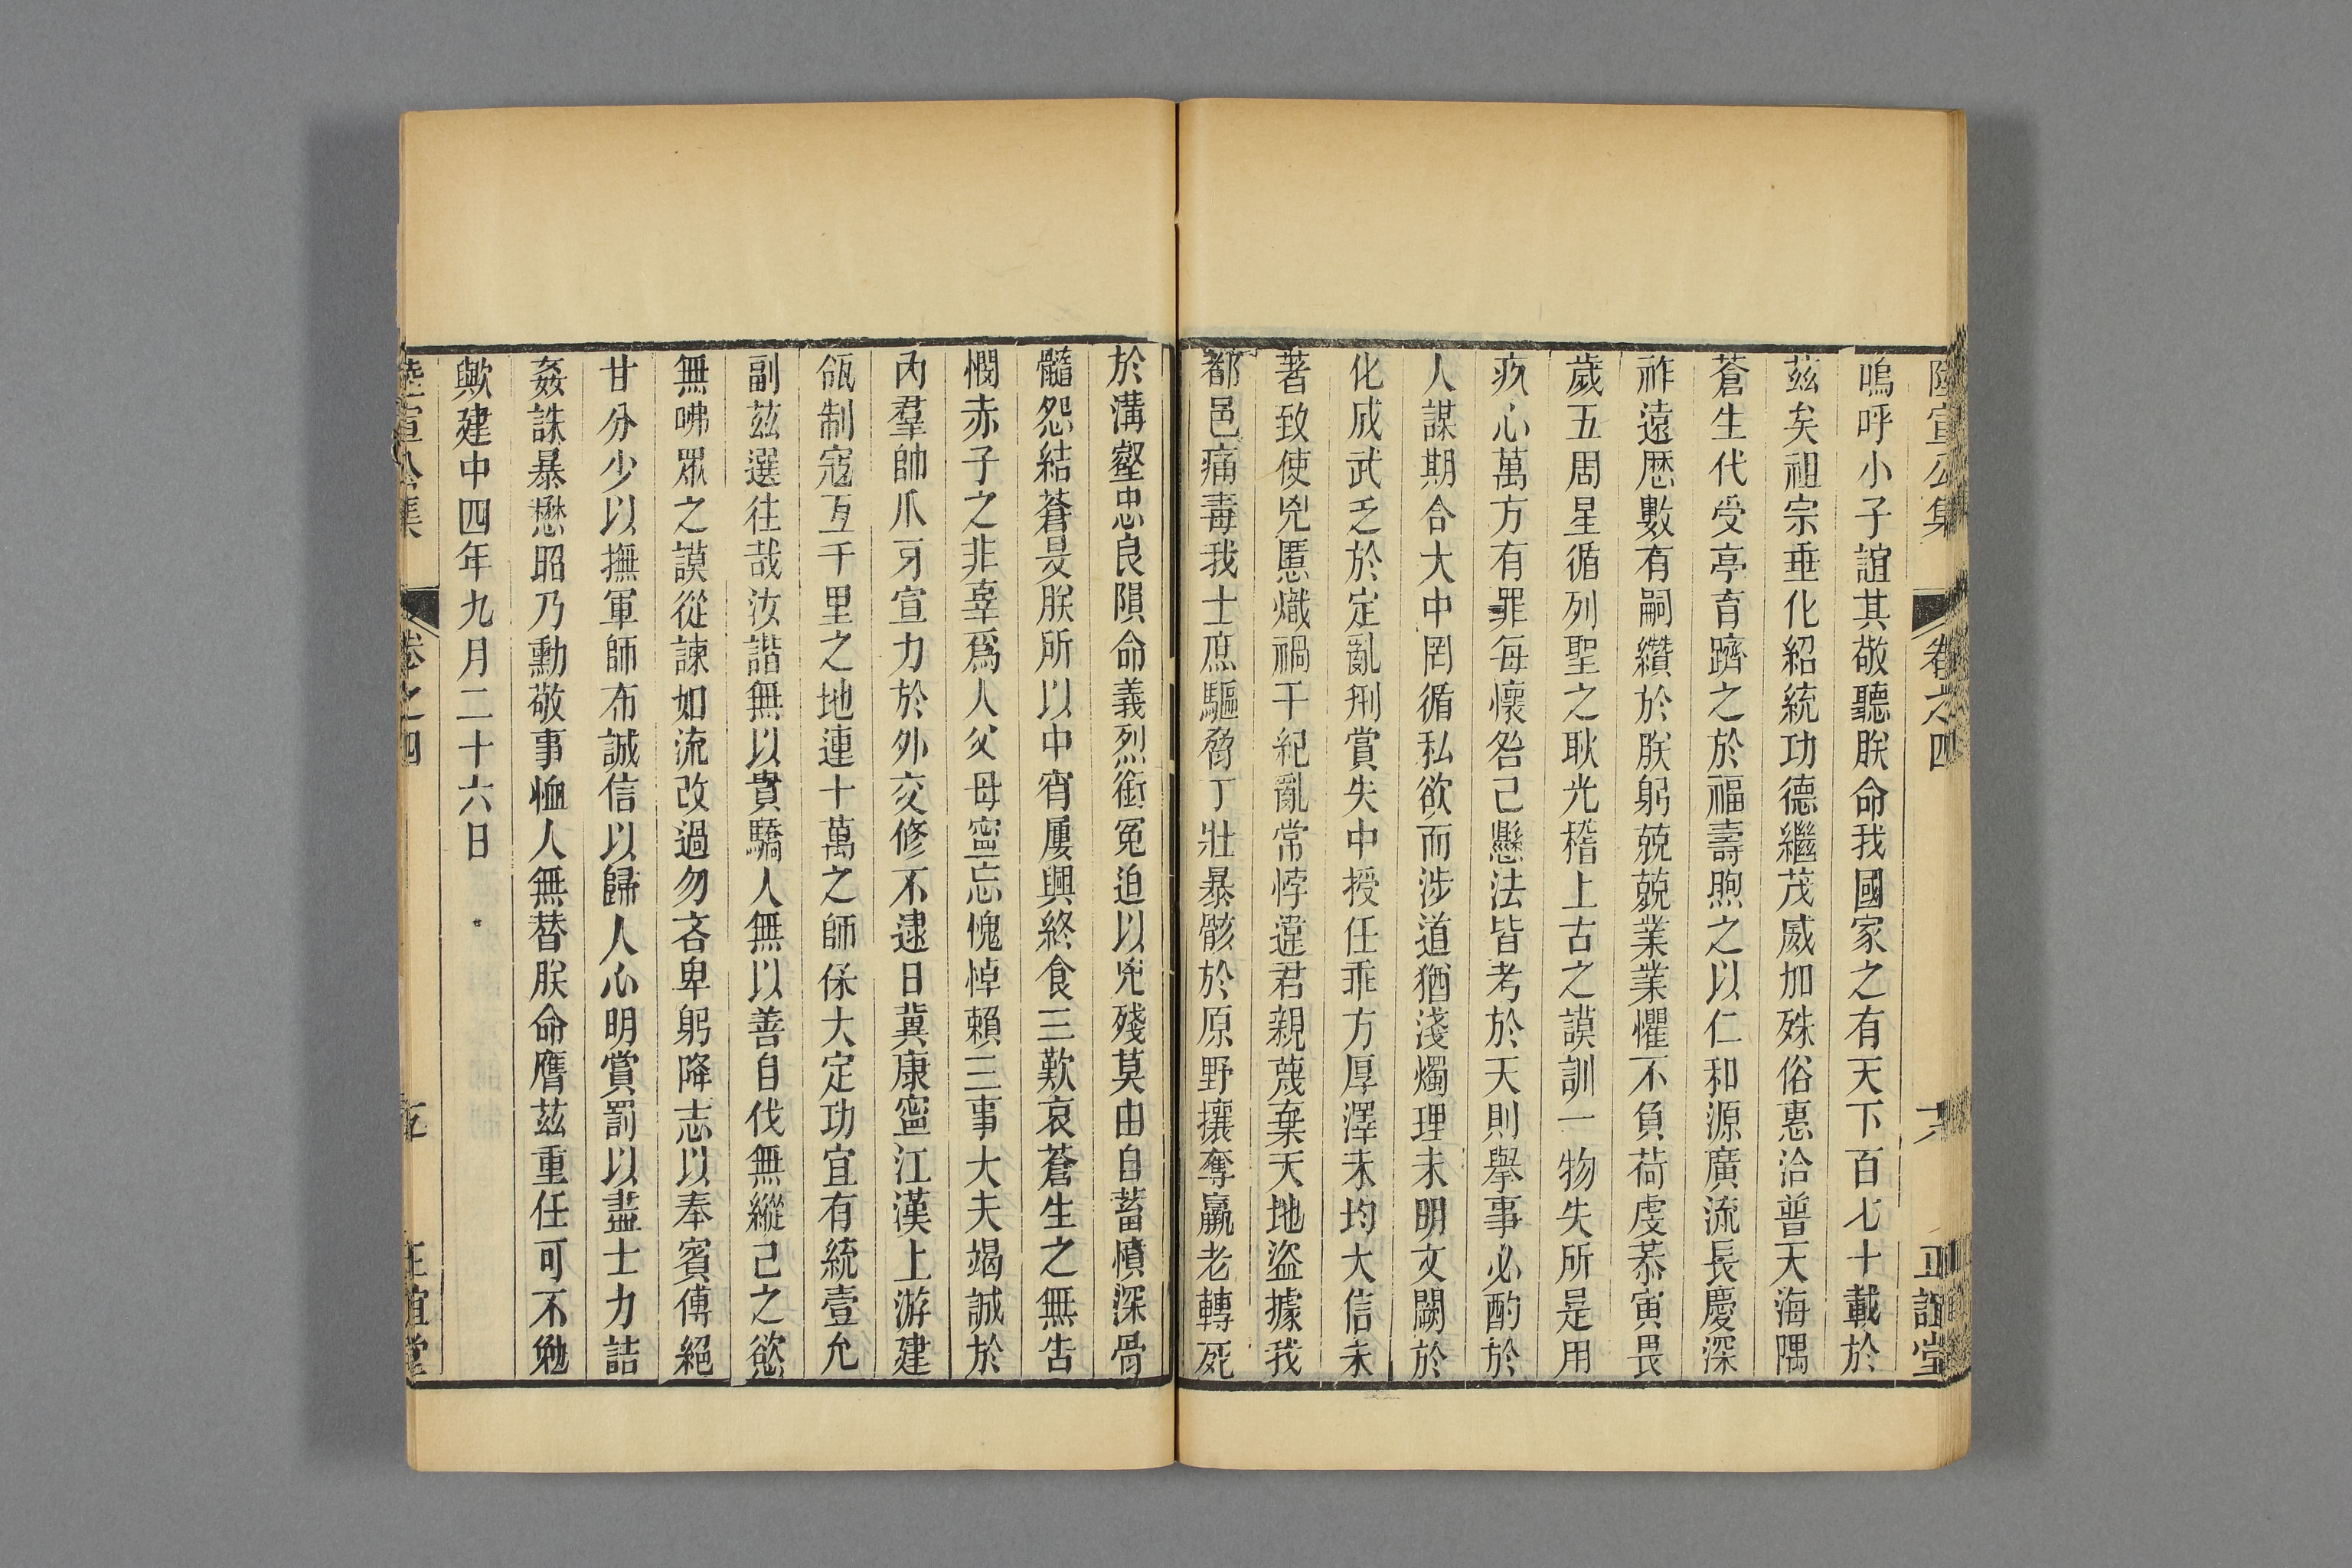 陸宣公集 卷之四 六 正誼堂
嗚呼小子誼其敬聽朕命我國家之有天下百七十載於
茲矣祖宗垂化紹統功德繼茂威加殊俗惠洽普天海隅
蒼生代受亭育躋之於福壽煦之以仁和源廣流長慶深
祚遠厯數有嗣纘於朕躬兢兢業業懼不負荷虔恭寅畏
歲五周星循列聖之耿光稽上古之謨訓一物失所是用
疚心萬方有罪每懷咎己懸法皆考於天則舉事必酌於
人謀期合大中罔循私欲而涉道猶淺燭理未明文闕於
化成武乏於定亂刑賞失中授任乖方厚澤未均大信未
著致使兇慝熾禍干紀亂常悖違君親蔑棄天地盜據我
都邑痛毒我士庶驅脅丁壯暴骸於原野攘奪羸老轉死
於溝壑忠良隕命義烈銜冤迫以兇殘莫由自蓄憤深骨
髓怨結蒼旻朕所以中宵屢興終食三歎哀蒼生之無告
憫赤子之非辜爲人父母寧忘愧悼賴三事大夫竭誠於
內羣帥爪牙宣力於外交修不逮日冀康寧江漢上游建
瓴制寇亙千里之地連十萬之師保大定功宜有統壹允
副茲選往哉汝諧無以貴驕人無以善自伐無縱己之慾
無咈眾之謨從諫如流改過勿吝卑躬降志以奉賓傅絕
甘分少以撫軍師布誠信以歸人心明賞罰以盡士力詰
姦誅暴懋昭乃勳敬事恤人無替朕命膺茲重任可不勉
歟建中四年九月二十六日
陸宣公集 卷之四 五 正誼堂